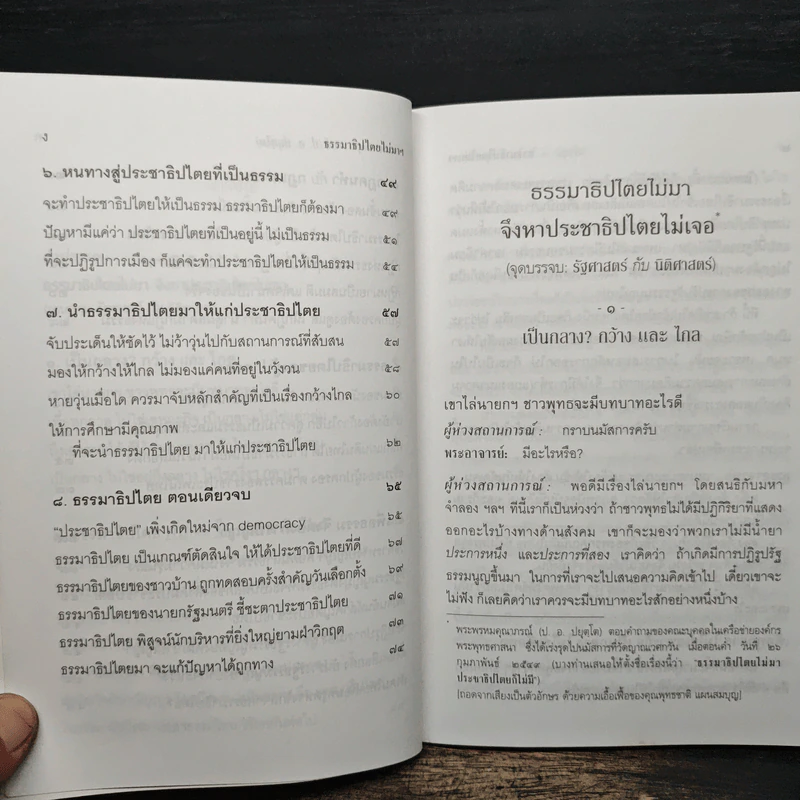 ง
ธรรมาธิปไตยไม่มาฯ
๖. หนทางสู่ประชาธิปไตยที่เป็นธรรม ๔๙
จะทำประชาธิปไตยให้เป็นธรรม ธรรมาธิปไตยก็ต้องมา ๔๙
ปัญหามีแค่ว่า ประชาธิปไตยที่เป็นอยู่นี้ ไม่เป็นธรรม ๕๑
ที่จะปฏิรูปการเมือง ก็แค่จะทำประชาธิปไตยให้เป็นธรรม ๕๔
๗. นำธรรมาธิปไตยมาให้แก่ประชาธิปไตย ๕๗
จับประเด็นให้ชัดไว้ ไม่ว้าวุ่นไปกับสถานการณ์ที่สับสน ๕๗
มองให้กว้างให้ไกล ไม่มองแค่คนที่อยู่ในวังวน ๕๘
หายวุ่นเมื่อใด ควรมาจับหลักสำคัญที่เป็นเรื่องกว้างไกล ๖๐
ให้การศึกษามีคุณภาพ
ที่จะนำธรรมาธิปไตย มาให้แก่ประชาธิปไตย ๖๒
๘. ธรรมาธิปไตย ตอนเดียวจบ ๖๕
"ประชาธิปไตย" เพิ่งเกิดใหม่จาก democracy ๖๕
ธรรมาธิปไตย เป็นเกณฑ์ตัดสินใจ ให้ได้ประชาธิปไตยที่ดี ๖๗
ธรรมาธิปไตยของชาวบ้าน ถูกทดสอบครั้งสำคัญวันเลือกตั้ง ๖๙
ธรรมาธิปไตยของนายกรัฐมนตรี ชี้ชะตาประชาธิปไตย ๗๑
ธรรมาธิปไตย พิสูจน์นักบริหารที่ยิ่งใหญ่ยามฝ่าวิกฤต ๗๓
ธรรมาธิปไตยมา จะแก้ปัญหาได้ถูกทาง ๗๔
ธรรมาธิปไตยไม่มา
จึงหาประชาธิปไตยไม่เจอ*
(จุดบรรจบ: รัฐศาสตร์ กับ นิติศาสตร์)
- ๑ -
เป็นกลาง? กว้าง และ ไกล
เขาไล่นายกฯ ชาวพุทธจะมีบทบาทอะไรดี
ผู้ห่วงสถานการณ์: กราบนมัสการครับ
พระอาจารย์: มีอะไรหรือ?
ผู้ห่วงสถานการณ์: พอดีมีเรื่องไล่นายกฯ โดยสนธิกับมหา
จำลอง ฯลฯ ทีนี้เราก็เป็นห่วงว่า ถ้าชาวพุทธไม่ได้มีปฏิกิริยาที่แสดง
ออกอะไรบ้างทางด้านสังคม เขาก็จะมองว่าพวกเราไม่มีน้ำยา
ประการหนึ่ง และประการที่สอง เราคิดว่า ถ้าเกิดมีการปฏิรูปรัฐ
ธรรมนูญขึ้นมา ในการที่เราจะไปเสนอความคิดเข้าไป เดี๋ยวเขาจะ
ไม่ฟัง ก็เลยคิดว่าเราควรจะมีบทบาทอะไรสักอย่างหนึ่งบ้าง
* พระพรหมคุณาภรณ์ (ป. อ. ปยุตฺโต) ตอบคำถามของคณะบุคคลในเครือข่ายองค์กร
พระพุทธศาสนา ซึ่งได้เร่งรุดไปนมัสการที่วัดญาณเวศกวัน เมื่อตอนค่ำ วันที่ ๒๖
กุมภาพันธ์ ๒๕๔๙ (บางท่านเสนอให้ตั้งชื่อเรื่องนี้ว่า "ธรรมาธิปไตยไม่มา
ประชาธิปไตยก็ไม่มี")
[ถอดจากเสียงเป็นตัวอักษร ด้วยความเอื้อเฟื้อของคุณพุทธชาติ แผนสมบุญ]